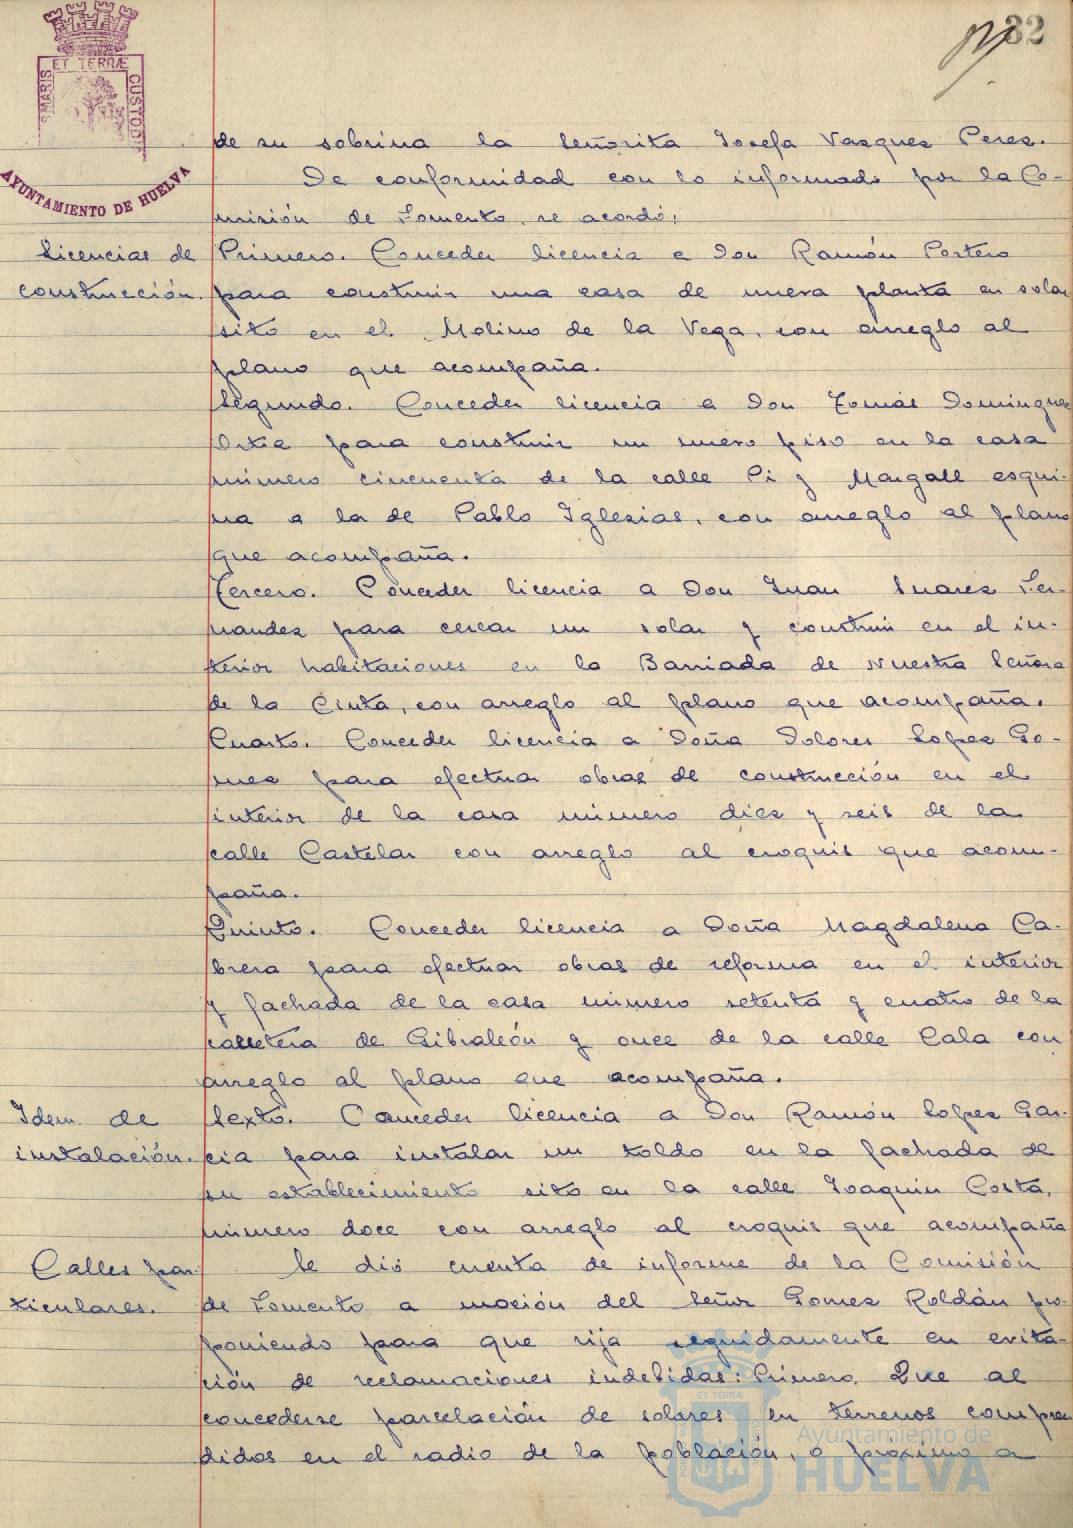 32
ET TERRÆ
MARIS
CUSTODI
AYUNTAMIENTO DE HUELVA
de su sobrina la Señorita Josefa Vazquez Perez.
De conformidad con lo informado por la Co-
misión de Fomento, se acordó:
Licencias de
construcción.
Primero. Conceder licencia a Don Ramón Portero
para construir una casa de nueva planta en solar
sito en el Molino de la Vega, con arreglo al
plano que acompaña.
Segundo. Conceder licencia a Don Tomás Dominguez
Ortiz para construir un nuevo piso en la casa
número cincuenta de la calle Pi y Margall esqui-
na a la de Pablo Iglesias, con arreglo al plano
que acompaña.
Tercero. Conceder licencia a Don Juan Suarez Fer-
nandez para cercar un solar y construir en el in-
terior habitaciones en la Barriada de Nuestra Señora
de la Cinta, con arreglo al plano que acompaña.
Cuarto. Conceder licencia a Doña Dolores Lopez Go-
mez para efectuar obras de construcción en el
interior de la casa número diez y seis de la
calle Castelar con arreglo al croquis que acom-
paña.
Quinto. Conceder licencia a Doña Magdalena Ca-
brera para efectuar obras de reforma en el interior
y fachada de la casa número setenta y cuatro de la
carretera de Gibraleón y once de la calle Cala con
arreglo al plano que acompaña.
Idem. de
instalación.
Sexto. Conceder licencia a Don Ramón Lopez Gar-
cia para instalar un toldo en la fachada de
su establecimiento sito en la calle Joaquin Costa,
número doce con arreglo al croquis que acompaña
Calles par-
ticulares.
Se dió cuenta de informe de la Comisión
de Fomento a moción del Señor Gomez Roldán pro-
poniendo para que rija seguidamente en evita-
ción de reclamaciones indebidas: Primero. Que al
concederse parcelación de solares en terrenos compren
didos en el radio de la población, o próximo a
ET TERRÆ
Ayuntamiento de
HUELVA